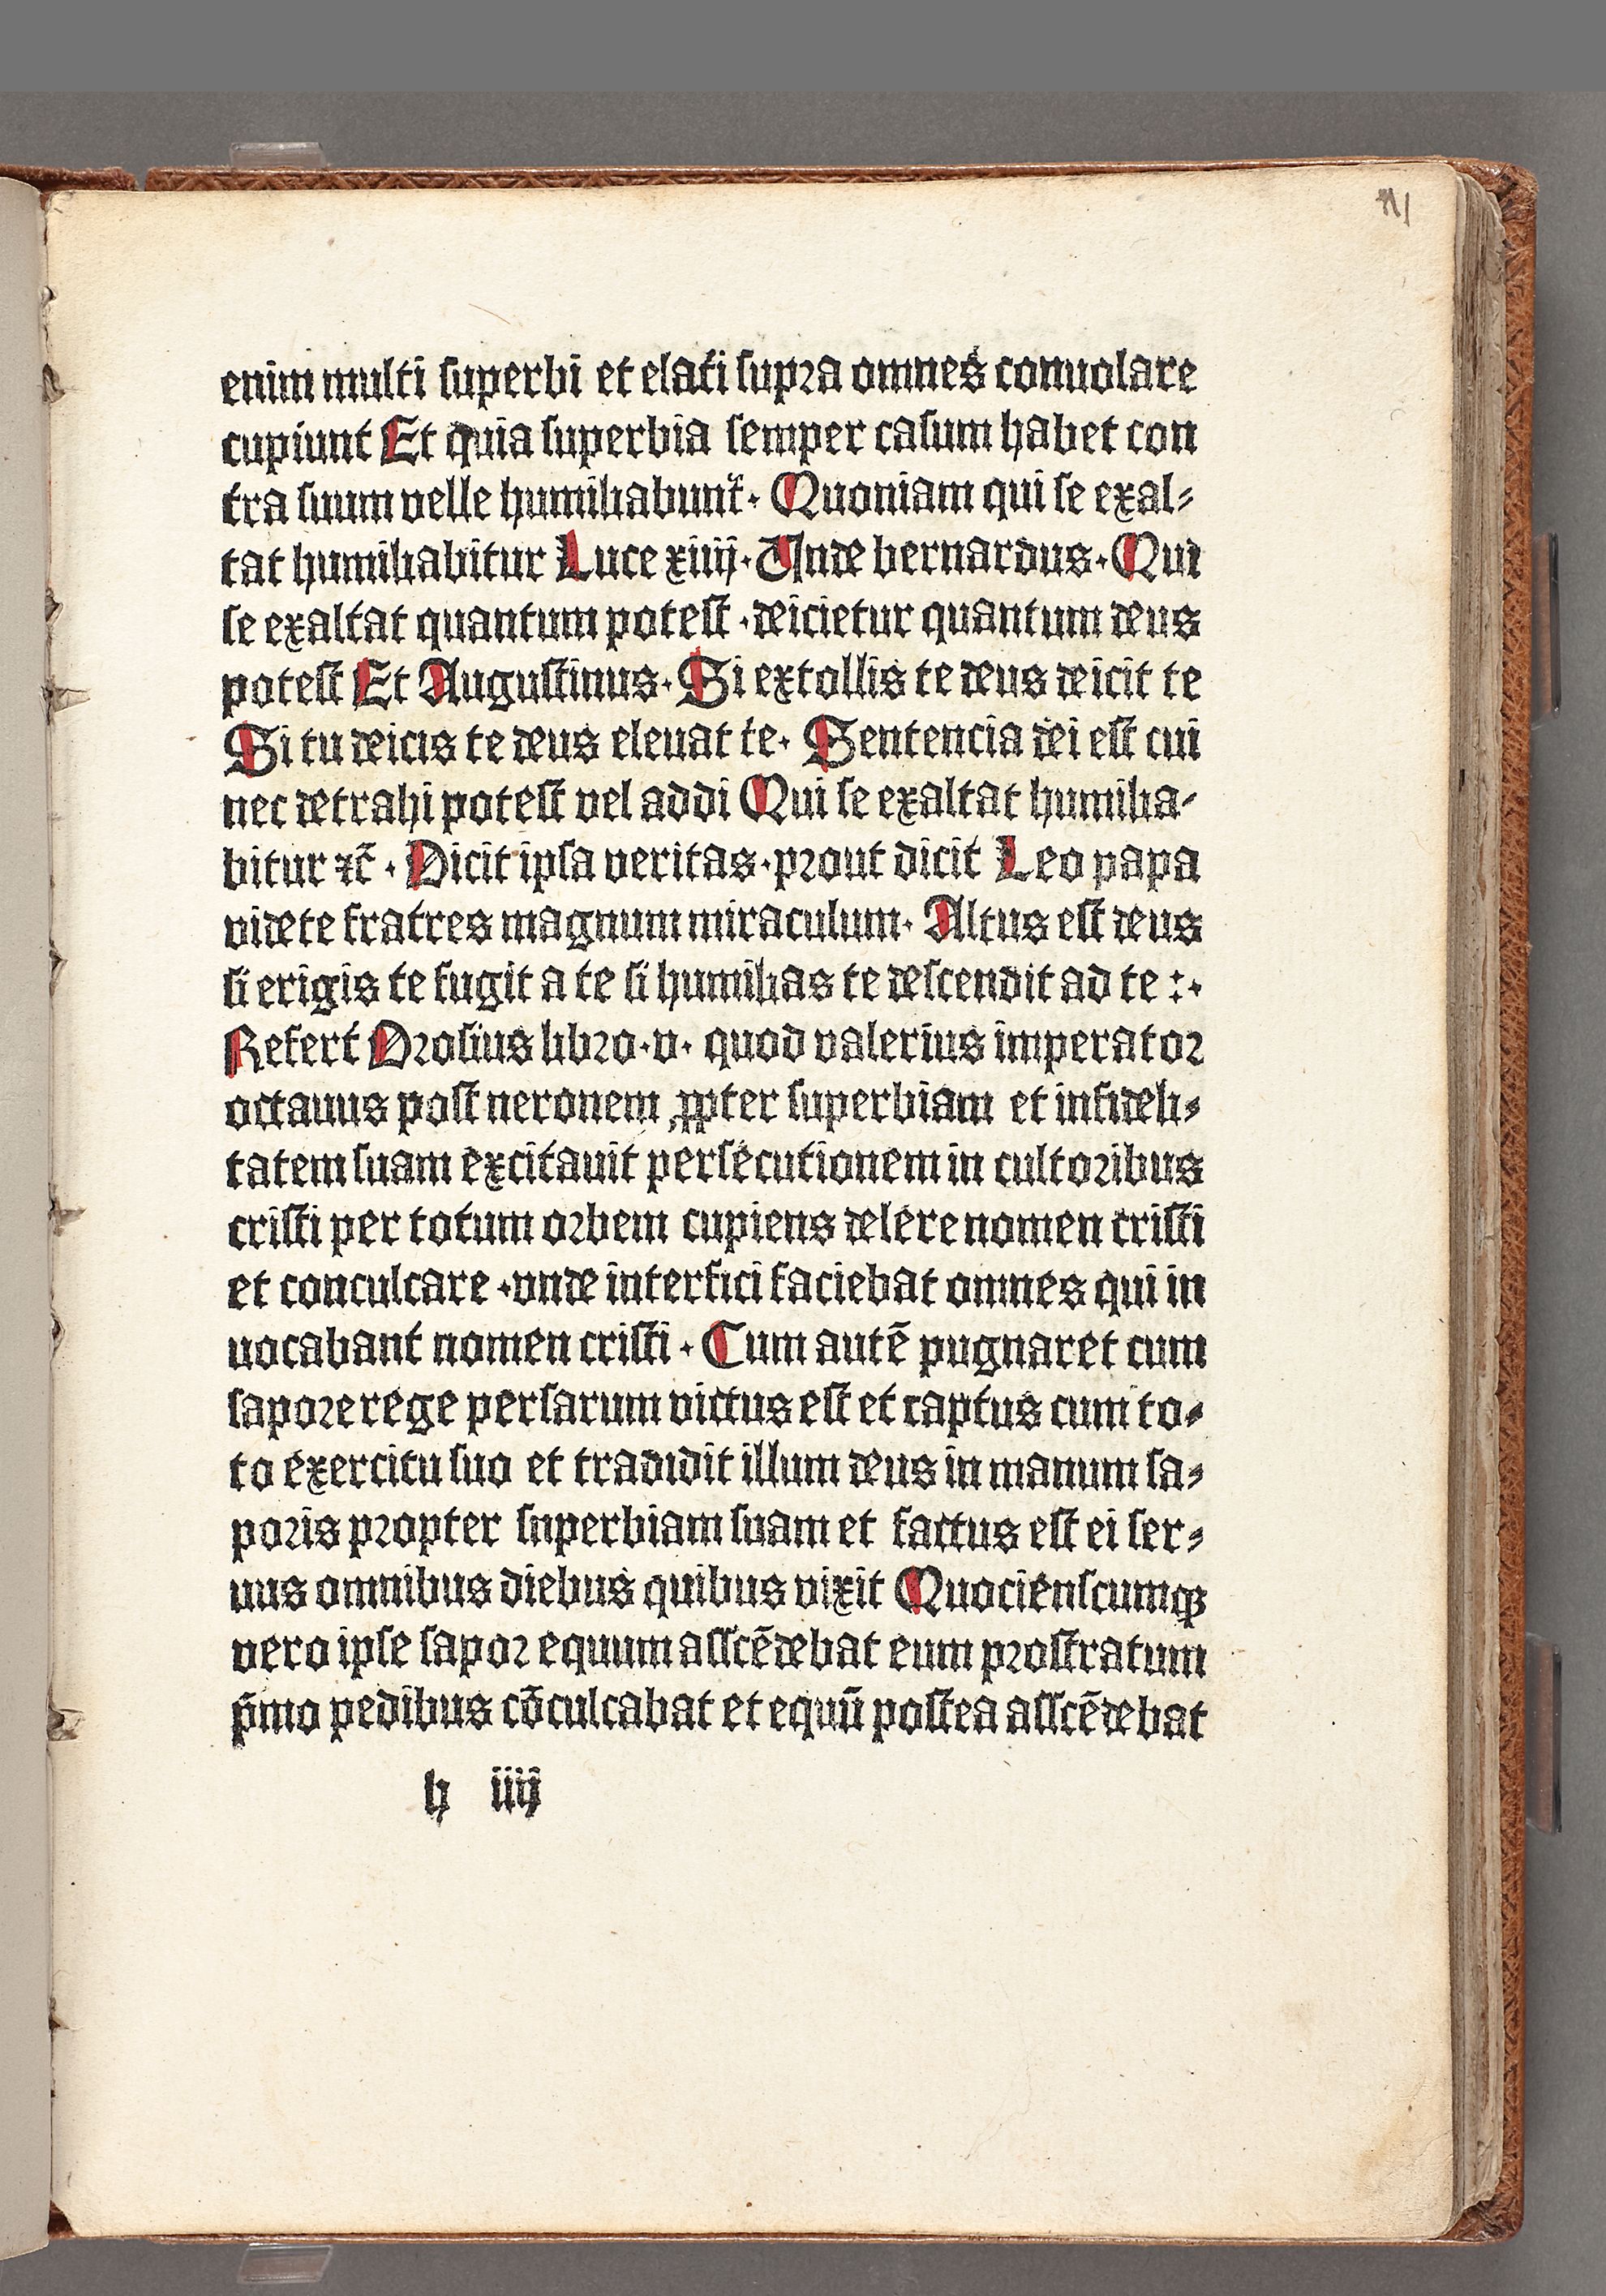 enim multi superbi et elati supra omnes conuolare
cupiunt Et quia superbia semper casum habet con
tra suum velle humiliabunt᷑· Quoniam qui se exal⸗
tat humiliabitur Luce xiiij· Unde bernardus· Qui
se exaltat quantum potest · deicietur quantum deus
potest Et Augustinus· Si extollis te deus deicit te
Si tu deicis te deus eleuat te· Sentencia dei est cui
nec detrahi potest vel addi Qui se exaltat humilia⸗
bitur ⁊c̄ · Dicit ipsa veritas·prout dicit Leo papa
videte fratres magnum miraculum· Altus est deus
si erigis te fugit a te si humilias te descendit ad te :·
Refert Orosius libro·v· quod valerius imperator
octauus post neronem ꝓpter superbiam et infideli⸗
tatem suam excitauit persecutionem in cultoribus
cristi per totum orbem cupiens delere nomen cristi
et conculcare ·vnde interfici faciebat omnes qui in
uocabant nomen cristi · Cum autē pugnaret cum
sapore rege persarum victus est et captus cum to⸗
to exercitu suo et tradidit illum deus in manum sa⸗
poris propter superbiam suam et factus est ei ser⸗
uus omnibus diebus quibus vixit Quocienscumqꝫ
vero ipse sapor equum asscēdebat eum prostratum
p̄mo pedibus cōculcabat et equū postea asscēdebat
h iiij